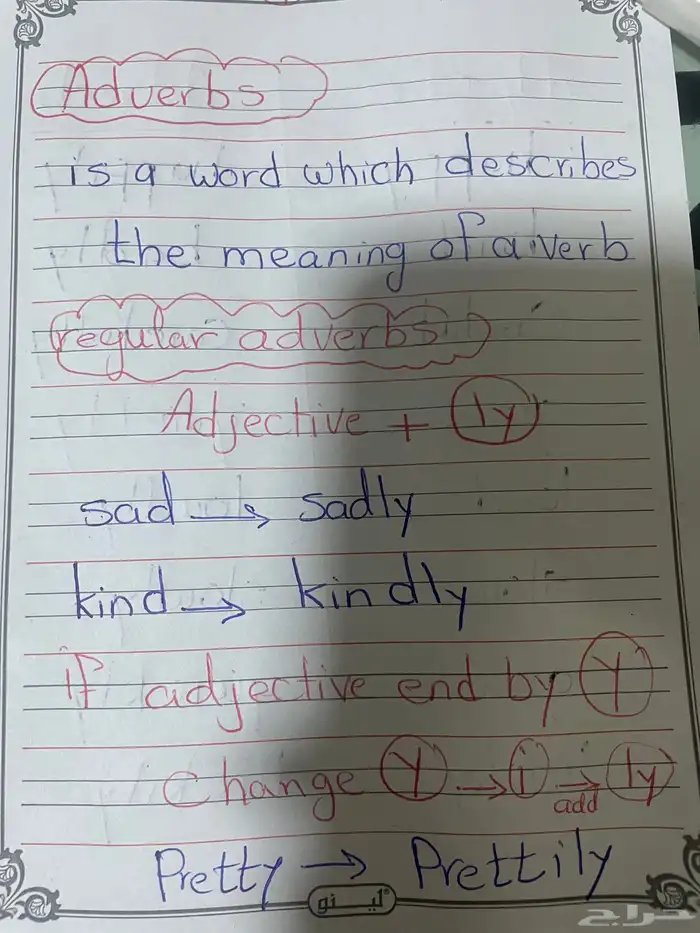 Adverbs
is a word which describes
the meaning of a verb
regular adverbs
Adjective + ly
sad → sadly
kind → kindly
if adjective end by y
Change y → i → ly
add
Pretty → Prettily
لينو
حراج